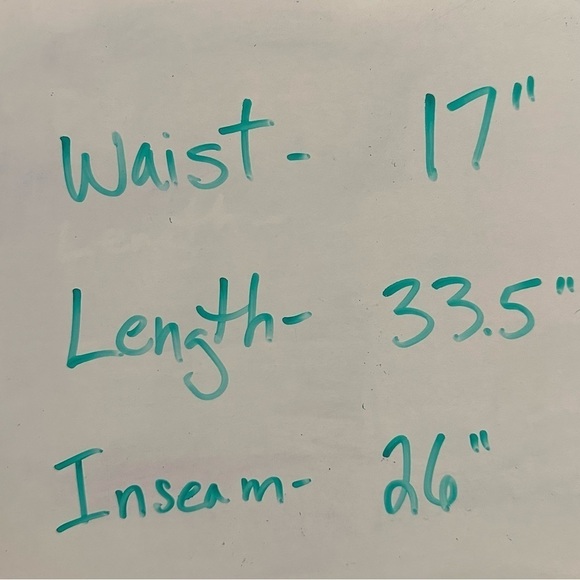 Waist- 17"
Length- 33.5"
Inseam- 26"